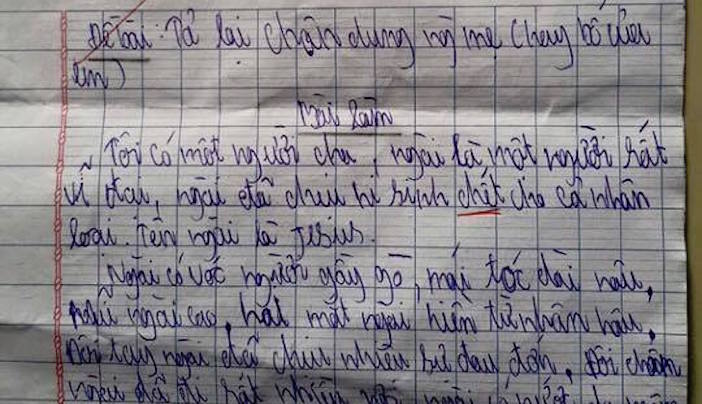 Đề bài: Tả lại chân dung người mẹ (hay bố của
em)
Bài làm
Tôi có một người cha, ngài là một người rất
vĩ đại, ngài đã chịu hi sinh chết cho cả nhân
loại. Tên ngài là Jesius.
Ngài có vóc người gầy gò, mái tóc dài nâu,
mũi ngài cao, hai mắt ngài hiền từ nhân hậu.
Đôi tay ngài đã chịu nhiều sự đau đớn. Đôi chân
ngài đã đi rất nhiều nơi, ngài